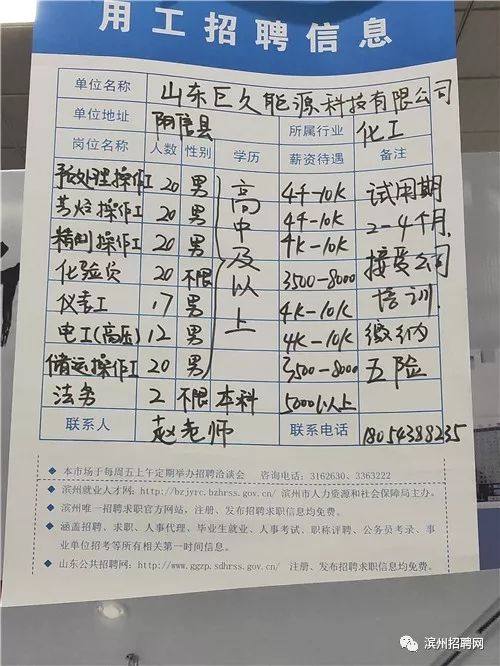 用工招聘信息
单位名称 山东巨久能源科技有限公司
单位地址 阳信县 所属行业 化工
岗位名称 人数 性别 学历 薪资待遇 备注
预处理操作工 20 男 高中及以上 4千-10K 试用期
芳烃操作工 20 男 4千-10K 2-4个月
精制操作工 20 男 4K-10K 接受公司
化验员 20 不限 3500-8000 培训
仪表工 17 男 4K-10K
电工(高压) 12 男 4K-10K 缴纳
储运操作工 20 男 3500-8000 五险
法务 2 不限 本科 5000以上
联系人 赵老师 联系电话 18054388235
◆ 本市场于每周五上午定期举办招聘洽谈会 咨询电话：3162630、3363222
◆ 滨州就业人才网：http://bzjyrc.bzhrss.gov.cn/ 滨州市人力资源和社会保障局主办。
◆ 滨州唯一招聘求职官方网站，注册、发布招聘求职信息均免费。
◆ 涵盖招聘、求职、人事代理、毕业生就业、人事考试、职称评聘、公务员考录、事
业单位招考等所有相关第一时间信息。
◆ 山东公共招聘网：http://www.ggzp.sdhrss.gov.cn/ 注册、发布招聘求职信息均免费。
滨州招聘网